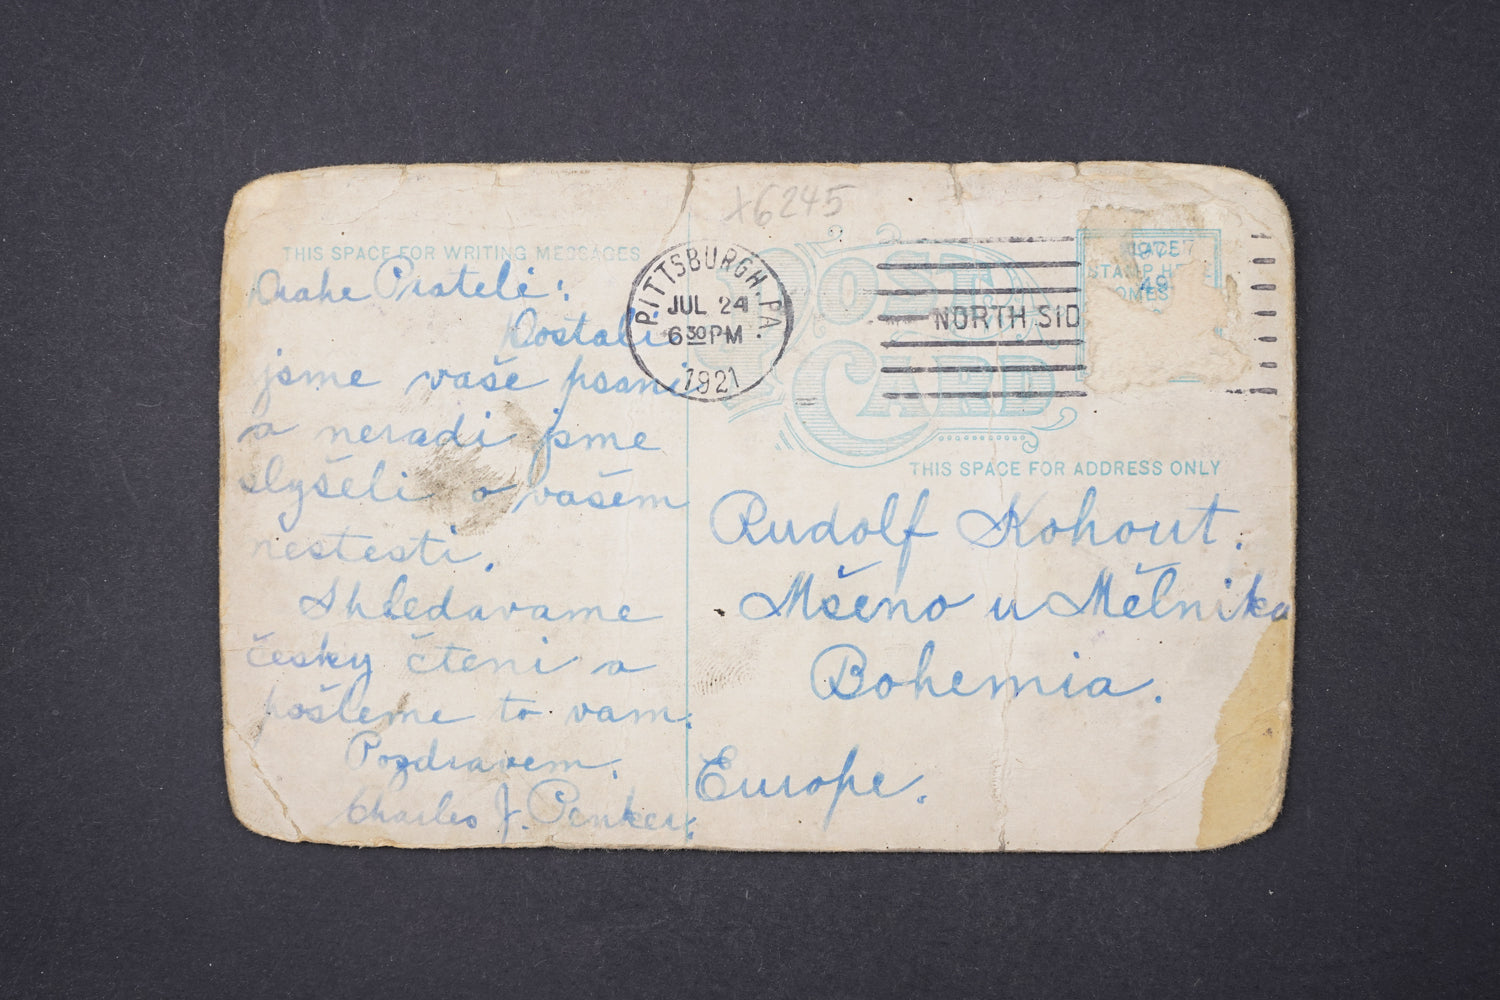 X6245
THIS SPACE FOR WRITING MESSAGES
Drahe Prateli:
Dostali
jsme vaše psani
a neradi jsme
slyšeli o vašem
nestesti.
Shledavame
česky čteni a
pošleme to vam.
Pozdravem.
Charles J. Penker.
PITTSBURGH, PA.
JUL 24
6 30 PM
1921
NORTH SID
POST
CARD
THIS SPACE FOR ADDRESS ONLY
Rudolf Kohout.
Mšeno u Mělnika
Bohemia.
Europe.